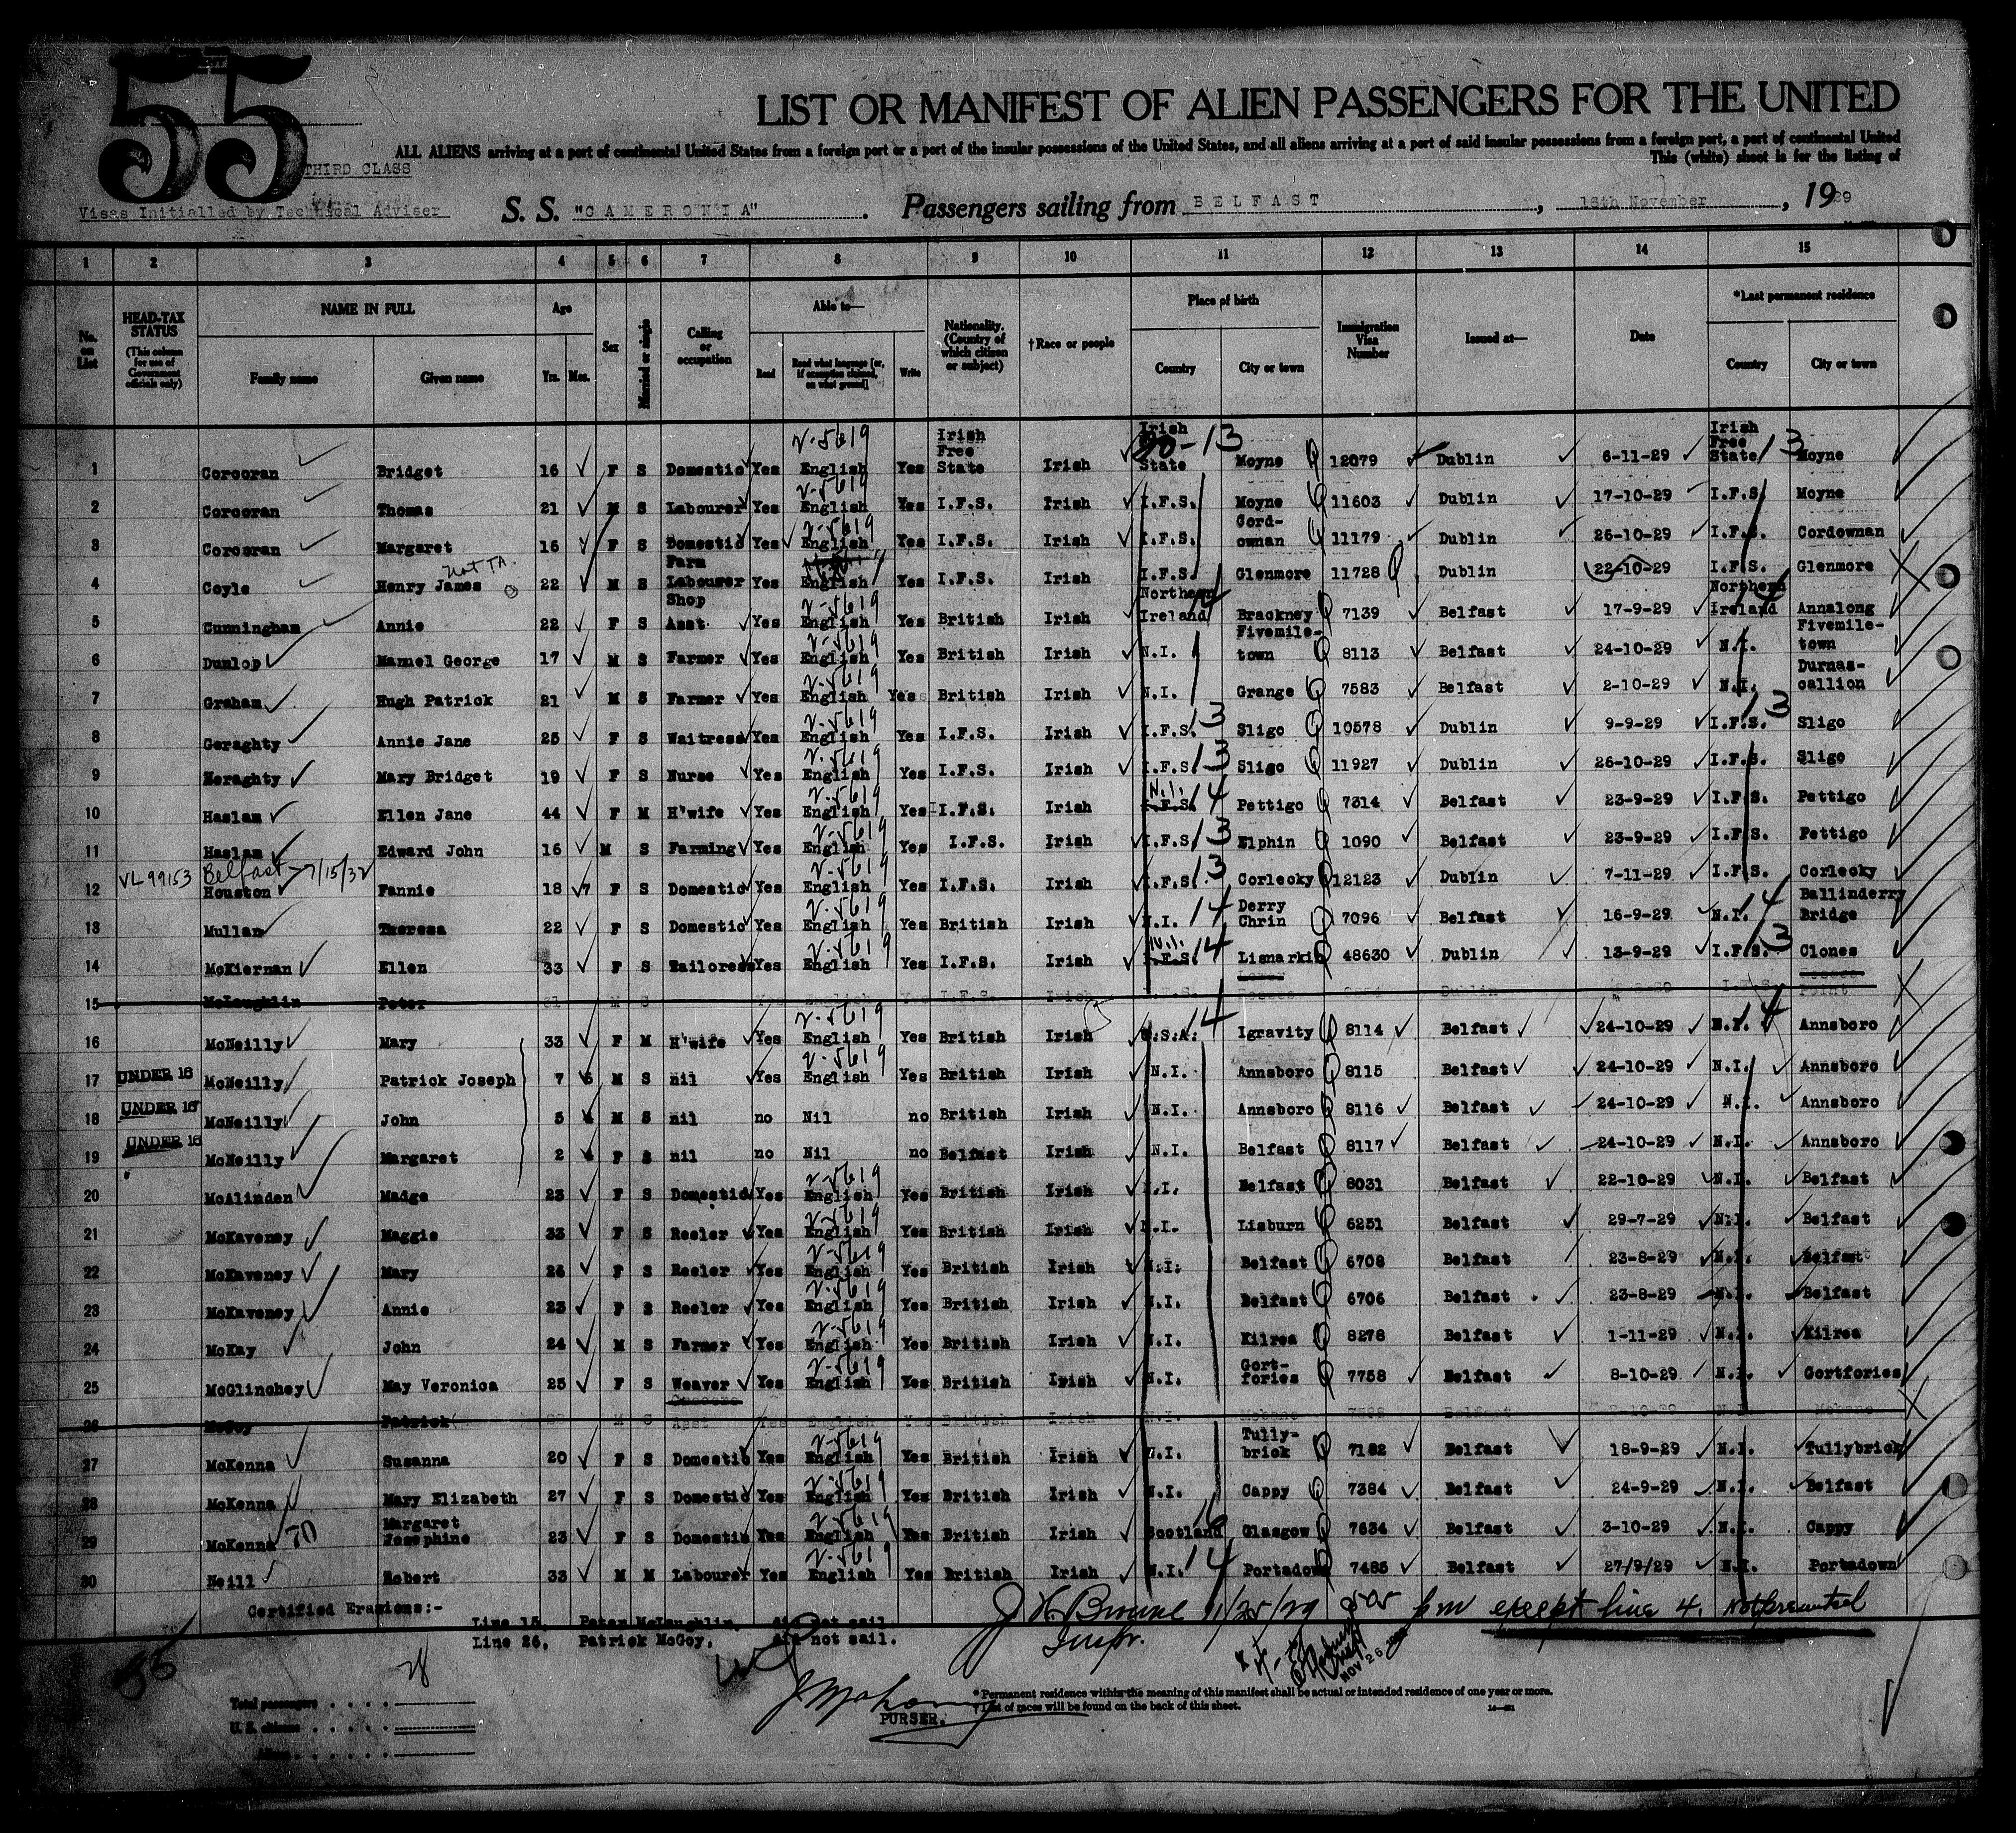 55
LIST OR MANIFEST OF ALIEN PASSENGERS FOR THE UNITED
ALL ALIENS arriving at a port of continental United States from a foreign port or a port of the insular possessions of the United States, and all aliens arriving at a port of said insular possessions from a foreign port, a port of continental United
This (white) sheet is for the listing of
THIRD CLASS
Visas Initialled by Technical Adviser S. S. "CAMERONIA" Passengers sailing from BELFAST, 16th November, 1929
1 2 3 4 5 6 7 8 9 10 11 12 13 14 15
No. on List HEAD-TAX STATUS (This column for use of Government officials only) NAME IN FULL Family name Given name Age Yrs. Mos. Sex Married or single Calling or occupation Able to— Read Read what language [or, if exemption claimed, on what ground] Write Nationality. (Country of which citizen or subject) †Race or people Place of birth Country City or town Immigration Visa Number Issued at— Date *Last permanent residence Country City or town
1 Corcoran Bridget 16 F S Domestic Yes English Yes Irish Free State Irish Irish State Moyne 12079 Dublin 6-11-29 Irish Free State Moyne
2 Corcoran Thomas 21 M S Labourer Yes English Yes I.F.S. Irish I.F.S. Moyne 11603 Dublin 17-10-29 I.F.S. Moyne
3 Corcoran Margaret 16 F S Domestic Yes English Yes I.F.S. Irish I.F.S. Cord-ownan 11179 Dublin 26-10-29 I.F.S. Cordownan
4 Coyle Henry James Not TA. 22 M S Farm Labourer Yes English Yes I.F.S. Irish I.F.S. Glenmore 11728 Dublin 22-10-29 I.F.S. Glenmore
5 Cunningham Annie 22 F S Shop Asst. Yes English Yes British Irish Northern Ireland Brackney 7139 Belfast 17-9-29 Northern Ireland Annalong
6 Dunlop Manuel George 17 M S Farmer Yes English Yes British Irish N.I. Fivemile-town 8113 Belfast 24-10-29 N.I. Fivemile-town
7 Graham Hugh Patrick 21 M S Farmer Yes English Yes British Irish N.I. Grange 7583 Belfast 2-10-29 N.I. Durnas-callion
8 Geraghty Annie Jane 25 F S Waitress Yes English Yes I.F.S. Irish I.F.S. Sligo 10578 Dublin 9-9-29 I.F.S. Sligo
9 Heraghty Mary Bridget 19 F S Nurse Yes English Yes I.F.S. Irish I.F.S. Sligo 11927 Dublin 26-10-29 I.F.S. Sligo
10 Haslam Ellen Jane 44 F M H'wife Yes English Yes I.F.S. Irish N.I. I.F.S. Pettigo 7314 Belfast 23-9-29 I.F.S. Pettigo
11 Haslam Edward John 16 M S Farming Yes English Yes I.F.S. Irish I.F.S. Elphin 1090 Belfast 23-9-29 I.F.S. Pettigo
VL 99153 Belfast-7/15/32
12 Houston Fannie 18 7 F S Domestic Yes English Yes I.F.S. Irish I.F.S. Corlecky 12123 Dublin 7-11-29 I.F.S. Corlecky
13 Mullan Theresa 22 F S Domestic Yes English Yes British Irish N.I. Derry Chrin 7096 Belfast 16-9-29 N.I. Ballinderry Bridge
14 McKiernan Ellen 33 F S Tailoress Yes English Yes I.F.S. Irish N.I. I.F.S. Lisnarki 48630 Dublin 13-9-29 I.F.S. Clones
15 McLaughlin Peter
16 McNeilly Mary 33 F M H'wife Yes English Yes British Irish U.S.A. Igravity 8114 Belfast 24-10-29 N.I. Annsboro
17 UNDER 16 McNeilly Patrick Joseph 7 M S nil Yes English Yes British Irish N.I. Annsboro 8115 Belfast 24-10-29 N.I. Annsboro
18 UNDER 16 McNeilly John 5 M S nil no Nil no British Irish N.I. Annsboro 8116 Belfast 24-10-29 N.I. Annsboro
19 UNDER 16 McNeilly Margaret 2 F S nil no Nil no Belfast Irish N.I. Belfast 8117 Belfast 24-10-29 N.I. Annsboro
20 McAlinden Madge 23 F S Domestic Yes English Yes British Irish N.I. Belfast 8031 Belfast 22-10-29 N.I. Belfast
21 McKaveney Maggie 33 F S Reeler Yes English Yes British Irish N.I. Lisburn 6251 Belfast 29-7-29 N.I. Belfast
22 McKaveney Mary 26 F S Reeler Yes English Yes British Irish N.I. Belfast 6708 Belfast 23-8-29 N.I. Belfast
23 McKaveney Annie 23 F S Reeler Yes English Yes British Irish N.I. Belfast 6706 Belfast 23-8-29 N.I. Belfast
24 McKay John 24 M S Farmer Yes English Yes British Irish N.I. Kilrea 8278 Belfast 1-11-29 N.I. Kilrea
25 McGlinchey May Veronica 25 F S Weaver Yes English Yes British Irish N.I. Gort-fories 7758 Belfast 8-10-29 N.I. Gortfories
26 McGoy Patrick
27 McKenna Susanna 20 F S Domestic Yes English Yes British Irish N.I. Tully-brick 7182 Belfast 18-9-29 N.I. Tullybrick
28 McKenna Mary Elizabeth 27 F S Domestic Yes English Yes British Irish N.I. Cappy 7384 Belfast 24-9-29 N.I. Belfast
29 McKenna 70 Margaret Josephine 23 F S Domestic Yes English Yes British Irish Scotland Glasgow 7634 Belfast 3-10-29 N.I. Cappy
30 Neill Robert 33 M M Labourer Yes English Yes British Irish N.I. Portadown 7485 Belfast 27/9/29 N.I. Portadown
Certified Erasions:-
Line 15. Peter McLaughlin. did not sail.
Line 26. Patrick McGoy. did not sail.
11/25/29 except line 4. Not presented
NOV 26
28
Total passengers
U. S. citizens
Aliens
PURSER.
*Permanent residence within the meaning of this manifest shall be actual or intended residence of one year or more.
†List of races will be found on the back of this sheet.